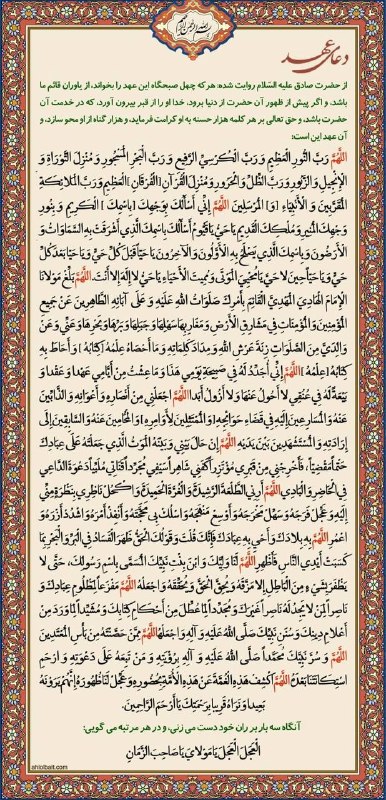 بسم الله الرحمن الرحیم
دعای عهد
از حضرت صادق علیه السّلام روایت شده: هر که چهل صبحگاه این عهد را بخواند، از یاوران قائم ما
باشد، و اگر پیش از ظهور آن حضرت از دنیا برود، خدا او را از قبر بیرون آورد، که در خدمت آن
حضرت باشد، و حق تعالی بر هر کلمه هزار حسنه به او کرامت فرماید، و هزار گناه از او محو سازد، و
آن عهد این است:
اَللّهُمَّ رَبَّ النُّورِ الْعَظیمِ وَ رَبَّ الْکُرْسِیِّ الرَّفیعِ وَ رَبَّ الْبَحْرِ الْمَسْجُورِ وَ مُنْزِلَ التَّوْراةِ وَ
الْإِنْجیلِ وَ الزَّبُورِ وَ رَبَّ الظِّلِّ وَ الْحَرُورِ وَ مُنْزِلَ الْقُرْآنِ [الْفُرْقَانِ] الْعَظیمِ وَ رَبَّ الْمَلائِکَةِ
الْمُقَرَّبینَ وَ الْأَنْبِیَاءِ [وَ] الْمُرْسَلینَ اَللّهُمَّ إِنِّی أَسْأَلُکَ بِوَجْهِکَ [بِاسْمِکَ] الْکَریمِ وَ بِنُورِ
وَجْهِکَ الْمُنیرِ وَ مُلْکِکَ الْقَدیمِ یَا حَیُّ یَا قَیُّومُ أَسْأَلُکَ بِاسْمِکَ الَّذی أَشْرَقَتْ بِهِ السَّمَاوَاتُ وَ
الْأَرَضُونَ وَ بِاسْمِکَ الَّذی یَصْلَحُ بِهِ الْأَوَّلُونَ وَ الْآخِرُونَ یَا حَیّاً قَبْلَ کُلِّ حَیٍّ وَ یَا حَیّاً بَعْدَ کُلِّ
حَیٍّ وَ یَا حَیّاً حینَ لا حَیَّ یَا مُحْیِیَ الْمَوْتَى وَ مُمیتَ الْأَحْیَاءِ یَا حَیُّ لا إِلَهَ إِلا أَنْتَ. اَللّهُمَّ بَلِّغْ مَوْلانَا
الْإِمَامَ الْهَادِیَ الْمَهْدِیَّ الْقَائِمَ بِأَمْرِکَ صَلَوَاتُ اللهِ عَلَیْهِ وَ عَلَى آبَائِهِ الطَّاهِرینَ عَنْ جَمیعِ
الْمُؤْمِنینَ وَ الْمُؤْمِنَاتِ فی مَشَارِقِ الْأَرْضِ وَ مَغَارِبِهَا سَهْلِهَا وَ جَبَلِهَا وَ بَرِّهَا وَ بَحْرِهَا وَ عَنِّی وَ عَنْ
وَالِدَیَّ مِنَ الصَّلَوَاتِ زِنَةَ عَرْشِ اللهِ وَ مِدَادَ کَلِمَاتِهِ وَ مَا أَحْصَاهُ عِلْمُهُ [کِتَابُهُ] وَ أَحَاطَ بِهِ
کِتَابُهُ [عِلْمُهُ] اَللّهُمَّ إِنِّی أُجَدِّدُ لَهُ فی صَبیحَةِ یَوْمی هَذَا وَ مَا عِشْتُ مِنْ أَیَّامی عَهْداً وَ عَقْداً وَ
بَیْعَةً لَهُ فی عُنُقی لا أَحُولُ عَنْهَا وَ لا أَزُولُ أَبَداً اَللّهُمَّ اجْعَلْنی مِنْ أَنْصَارِهِ وَ أَعْوَانِهِ وَ الذَّابِّینَ
عَنْهُ وَ الْمُسَارِعینَ إِلَیْهِ فی قَضَاءِ حَوَائِجِهِ [وَ الْمُمْتَثِلینَ لِأَوَامِرِهِ] وَ الْمُحَامینَ عَنْهُ وَ السَّابِقینَ إِلَى
إِرَادَتِهِ وَ الْمُسْتَشْهَدینَ بَیْنَ یَدَیْهِ اَللّهُمَّ إِنْ حَالَ بَیْنی وَ بَیْنَهُ الْمَوْتُ الَّذی جَعَلْتَهُ عَلَى عِبَادِکَ
حَتْماً مَقْضِیّاً، فَأَخْرِجْنی مِنْ قَبْری مُؤْتَزِراً کَفَنی شَاهِراً سَیْفی مُجَرِّداً قَنَاتی مُلَبِّیاً دَعْوَةَ الدَّاعی
فِی الْحَاضِرِ وَ الْبَادی اَللّهُمَّ أَرِنِی الطَّلْعَةَ الرَّشیدَةَ وَ الْغُرَّةَ الْحَمیدَةَ وَ اکْحُلْ نَاظِری بِنَظْرَةٍ مِنِّی
إِلَیْهِ وَ عَجِّلْ فَرَجَهُ وَ سَهِّلْ مَخْرَجَهُ وَ أَوْسِعْ مَنْهَجَهُ وَ اسْلُکْ بی مَحَجَّتَهُ وَ أَنْفِذْ أَمْرَهُ وَ اشْدُدْ أَزْرَهُ وَ
اعْمُرِ اَللّهُمَّ بِهِ بِلادَکَ وَ أَحْیِ بِهِ عِبَادَکَ فَإِنَّکَ قُلْتَ وَ قَوْلُکَ الْحَقُّ ظَهَرَ الْفَسَادُ فِی الْبَرِّ وَ الْبَحْرِ بِمَا
کَسَبَتْ أَیْدِی النَّاسِ فَأَظْهِرِ اَللّهُمَّ لَنَا وَلِیَّکَ وَ ابْنَ بِنْتِ نَبِیِّکَ الْمُسَمَّى بِاسْمِ رَسُولِکَ، حَتَّى لا
یَظْفَرَ بِشَیْءٍ مِنَ الْبَاطِلِ إِلا مَزَّقَهُ وَ یُحِقَّ الْحَقَّ وَ یُحَقِّقَهُ وَ اجْعَلْهُ اَللّهُمَّ مَفْزَعاً لِمَظْلُومِ عِبَادِکَ وَ
نَاصِراً لِمَنْ لا یَجِدُ لَهُ نَاصِراً غَیْرَکَ وَ مُجَدِّداً لِمَا عُطِّلَ مِنْ أَحْکَامِ کِتَابِکَ وَ مُشَیِّداً لِمَا وَرَدَ مِنْ
أَعْلامِ دینِکَ وَ سُنَنِ نَبِیِّکَ صَلَّى اللهُ عَلَیْهِ وَ آلِهِ وَ اجْعَلْهُ اَللّهُمَّ مِمَّنْ حَصَّنْتَهُ مِنْ بَأْسِ الْمُعْتَدینَ
اَللّهُمَّ وَ سُرَّ نَبِیَّکَ مُحَمَّداً صَلَّى اللهُ عَلَیْهِ وَ آلِهِ بِرُؤْیَتِهِ وَ مَنْ تَبِعَهُ عَلَى دَعْوَتِهِ وَ ارْحَمِ
اسْتِکَانَتَنَا بَعْدَهُ اَللّهُمَّ اکْشِفْ هَذِهِ الْغُمَّةَ عَنْ هَذِهِ الْأُمَّةِ بِحُضُورِهِ وَ عَجِّلْ لَنَا ظُهُورَهُ إِنَّهُمْ یَرَوْنَهُ
بَعیداً وَ نَرَاهُ قَریباً بِرَحْمَتِکَ یَا أَرْحَمَ الرَّاحِمینَ.
آنگاه سه بار بر ران خود دست می زنی، و در هر مرتبه می گویی:
الْعَجَلَ الْعَجَلَ یَا مَوْلایَ یَا صَاحِبَ الزَّمَانِ
ahlolbait.com